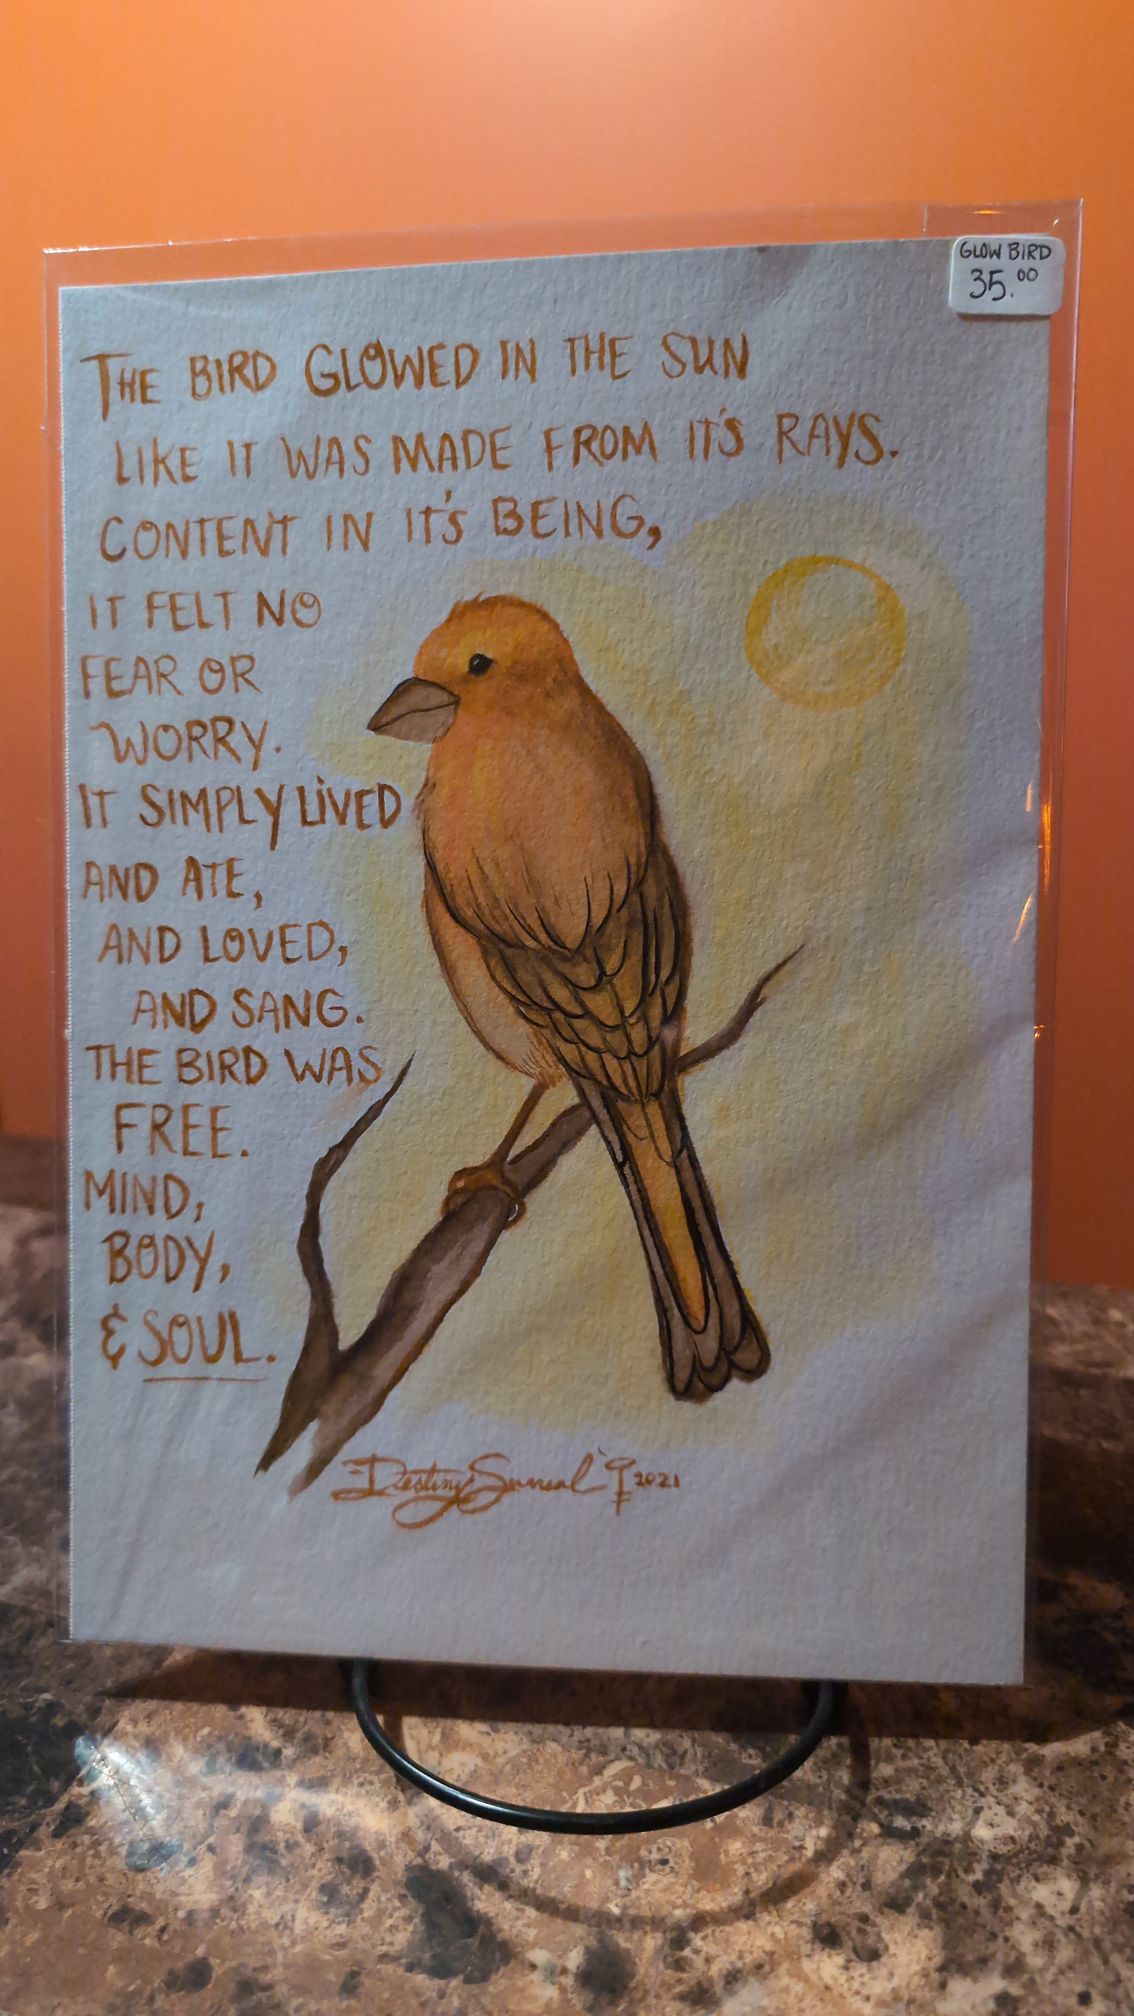 GLOW BIRD
35.00
THE BIRD GLOWED IN THE SUN
LIKE IT WAS MADE FROM IT'S RAYS.
CONTENT IN IT'S BEING,
IT FELT NO
FEAR OR
WORRY.
IT SIMPLY LIVED
AND ATE,
AND LOVED,
AND SANG.
THE BIRD WAS
FREE.
MIND,
BODY,
& SOUL.
Destiny 2021